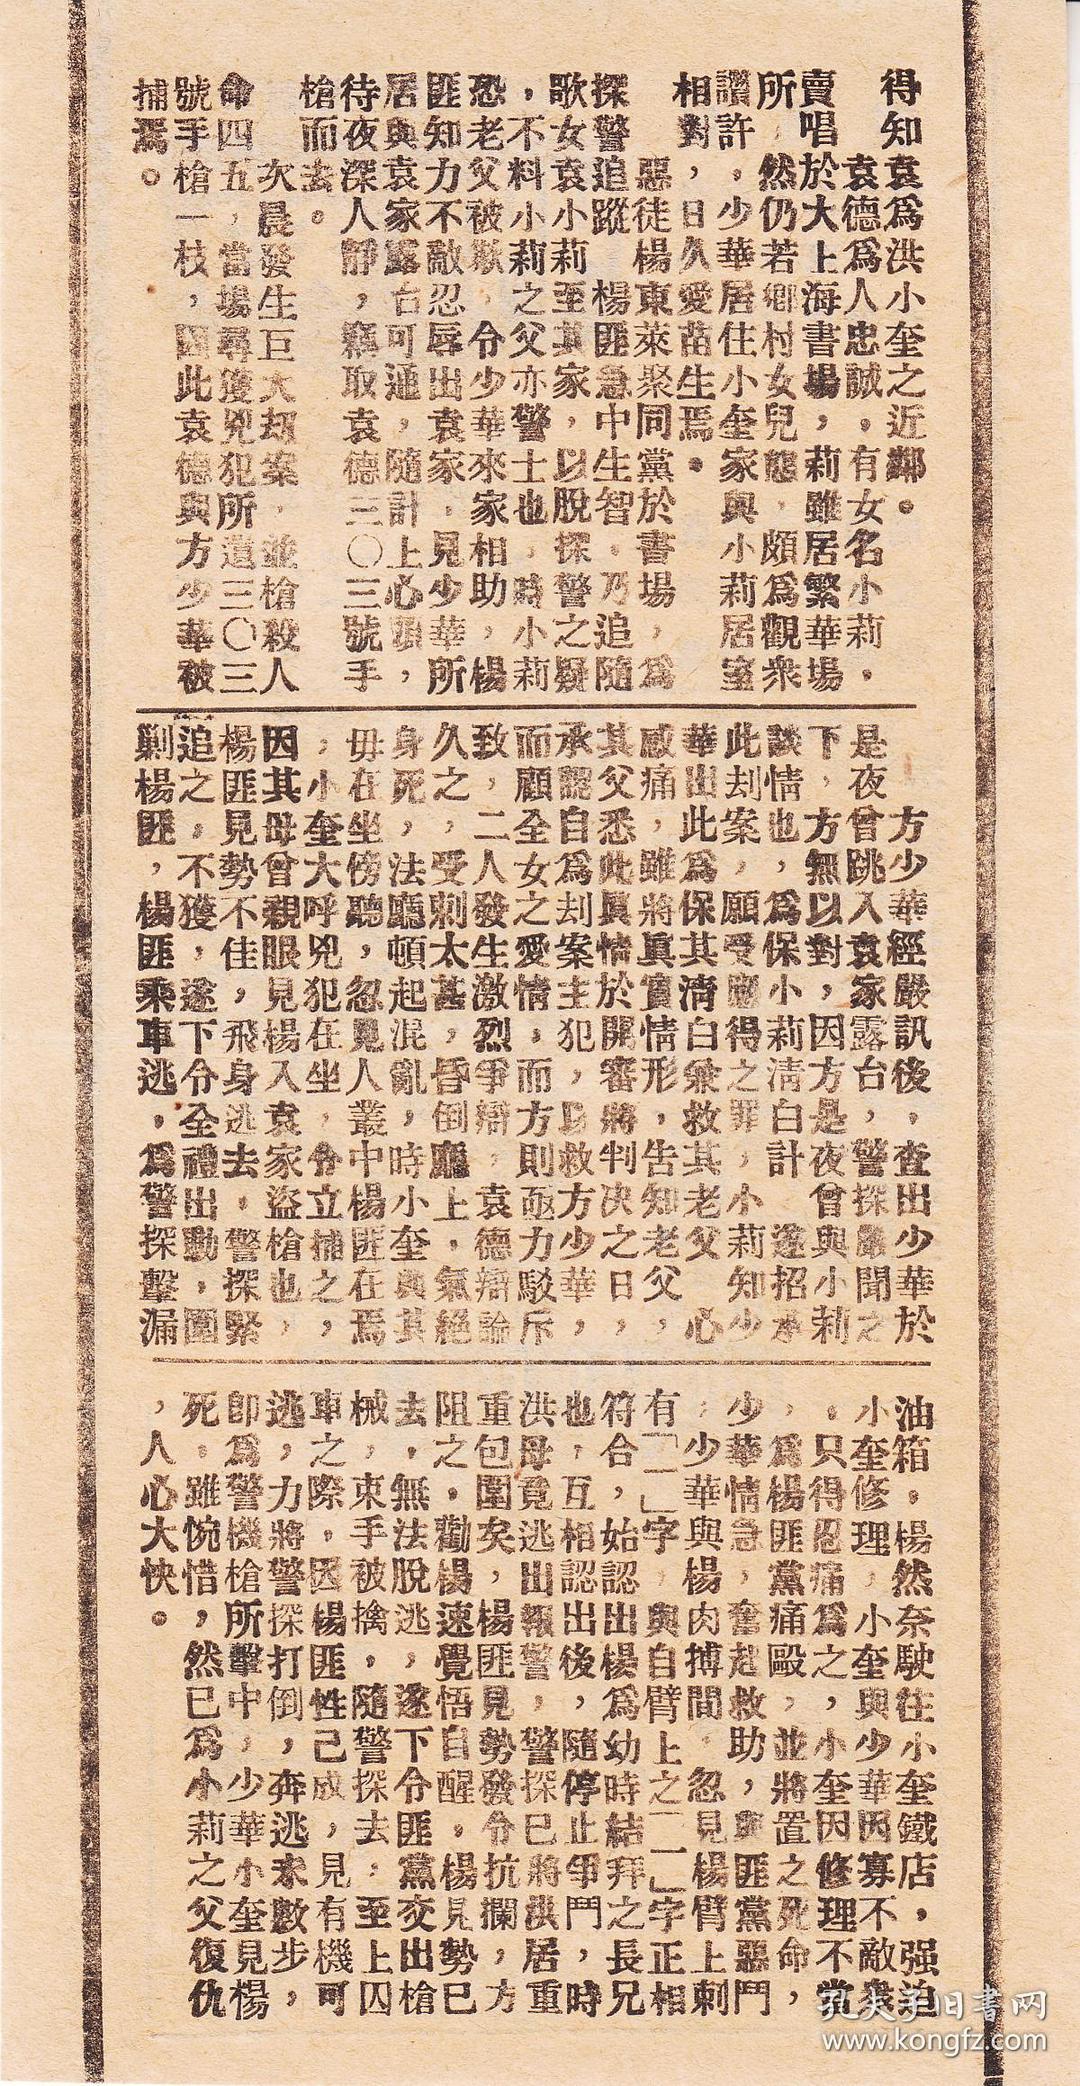 得知袁爲洪小奎之近鄰。
袁德爲人忠誠，有女名小莉，
賣唱於大上海書場，莉雖居繁華場
所，然仍若鄉村女兒態，頗爲觀衆
讚許，少華居住小奎家與小莉居室
相對，日久愛苗生焉。
惡徒楊東萊聚同黨於書場，爲
探警追蹤，楊匪急中生智，乃追隨
歌女袁小莉至其家，以脫探警之疑
，不料小莉之父亦警士也，時小莉
恐老父被欺，令少華來家相助，楊
匪知力不敵忍辱出袁家，見少華所
居與袁家露台可通，隨計上心頭，
待夜深人靜，竊取袁德三〇三號手
槍而去。
次晨發生巨大刼案，並槍殺人
命四五，當場尋獲兇犯所遺三〇三
號手槍一枝，因此袁德與方少華被
捕焉。
方少華經嚴訊後，查出少華於
是夜曾跳入袁家露台，警探嚴聞之
下，方無以對，因方是夜曾與小莉
談情也，爲保小莉清白計，遂招承
此刦案，願受應得之罪，小莉知少
華出此爲保其清白兼救其老父，心
感痛，雖將眞實情形，告知老父，
其父悉此眞情於開審將判决之日，
承認自爲刦案主犯，以救方少華，
而顧全女之愛情，而方則亟力駁斥
致，二人發生激烈爭辯，袁德辯論
久之，受刺太甚，昏倒廳上，氣絕
身死，法廳頓起混亂，時小奎與其
毋在坐傍聽，忽見人叢中楊匪在焉
，小奎大呼兇犯在坐，令立捕之，
因其母曾親眼見楊入袁家盜槍也，
楊匪見勢不佳，飛身逃去，警探緊
追之，不獲，遂下令全禮出動，圍
剿楊匪，楊匪乘車逃，爲警探擊漏
油箱，楊然奈駛往小奎鐵店，强迫
小奎修理，小奎與少華因寡不敵衆
，只得忍痛爲之，小奎因修理不當
，爲楊匪黨痛毆，並將置之死命，
少華情急，奮起救助，與匪黨惡鬥
，少華與楊肉搏間，忽見楊臂上刺
有「一」字，與自臂上之「一」字正相
符合，始認出楊爲幼時結拜之長兄
也，互相認出後，隨停止爭鬥，時
洪母竟逃出報警，警探已將洪居重
重包圍矣，楊匪見勢發令抗攔，方
阻之，勸楊速覺悟自醒，楊見勢已
去，無法脫逃，遂下令匪黨交出槍
械，束手被擒，隨警探去，至上囚
車之際，因楊匪性己成，見有機可
逃，力將警探打倒，奔逃未數步，
卽爲警機槍所擊中，少華小奎見楊
死，雖惋惜，然已爲小莉之父復仇
，人心大快。
孔夫子旧書网
www.kongfz.com